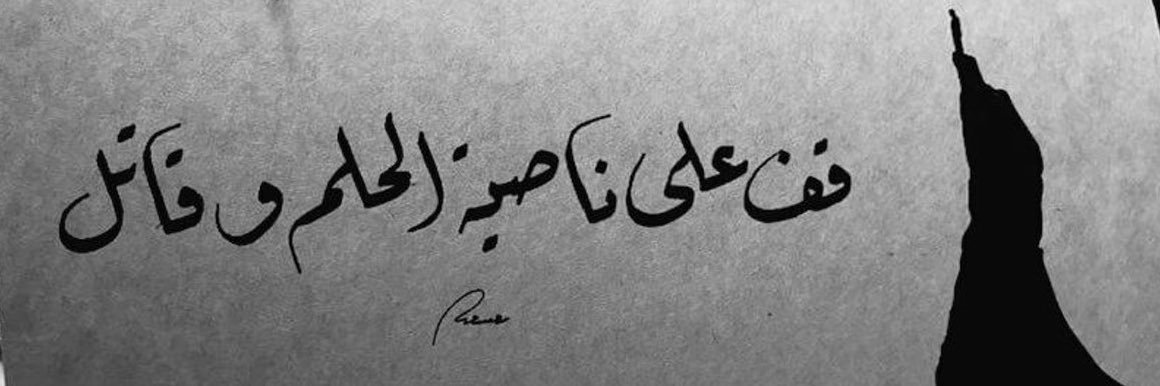 قف على ناصية الحلم و قاتل